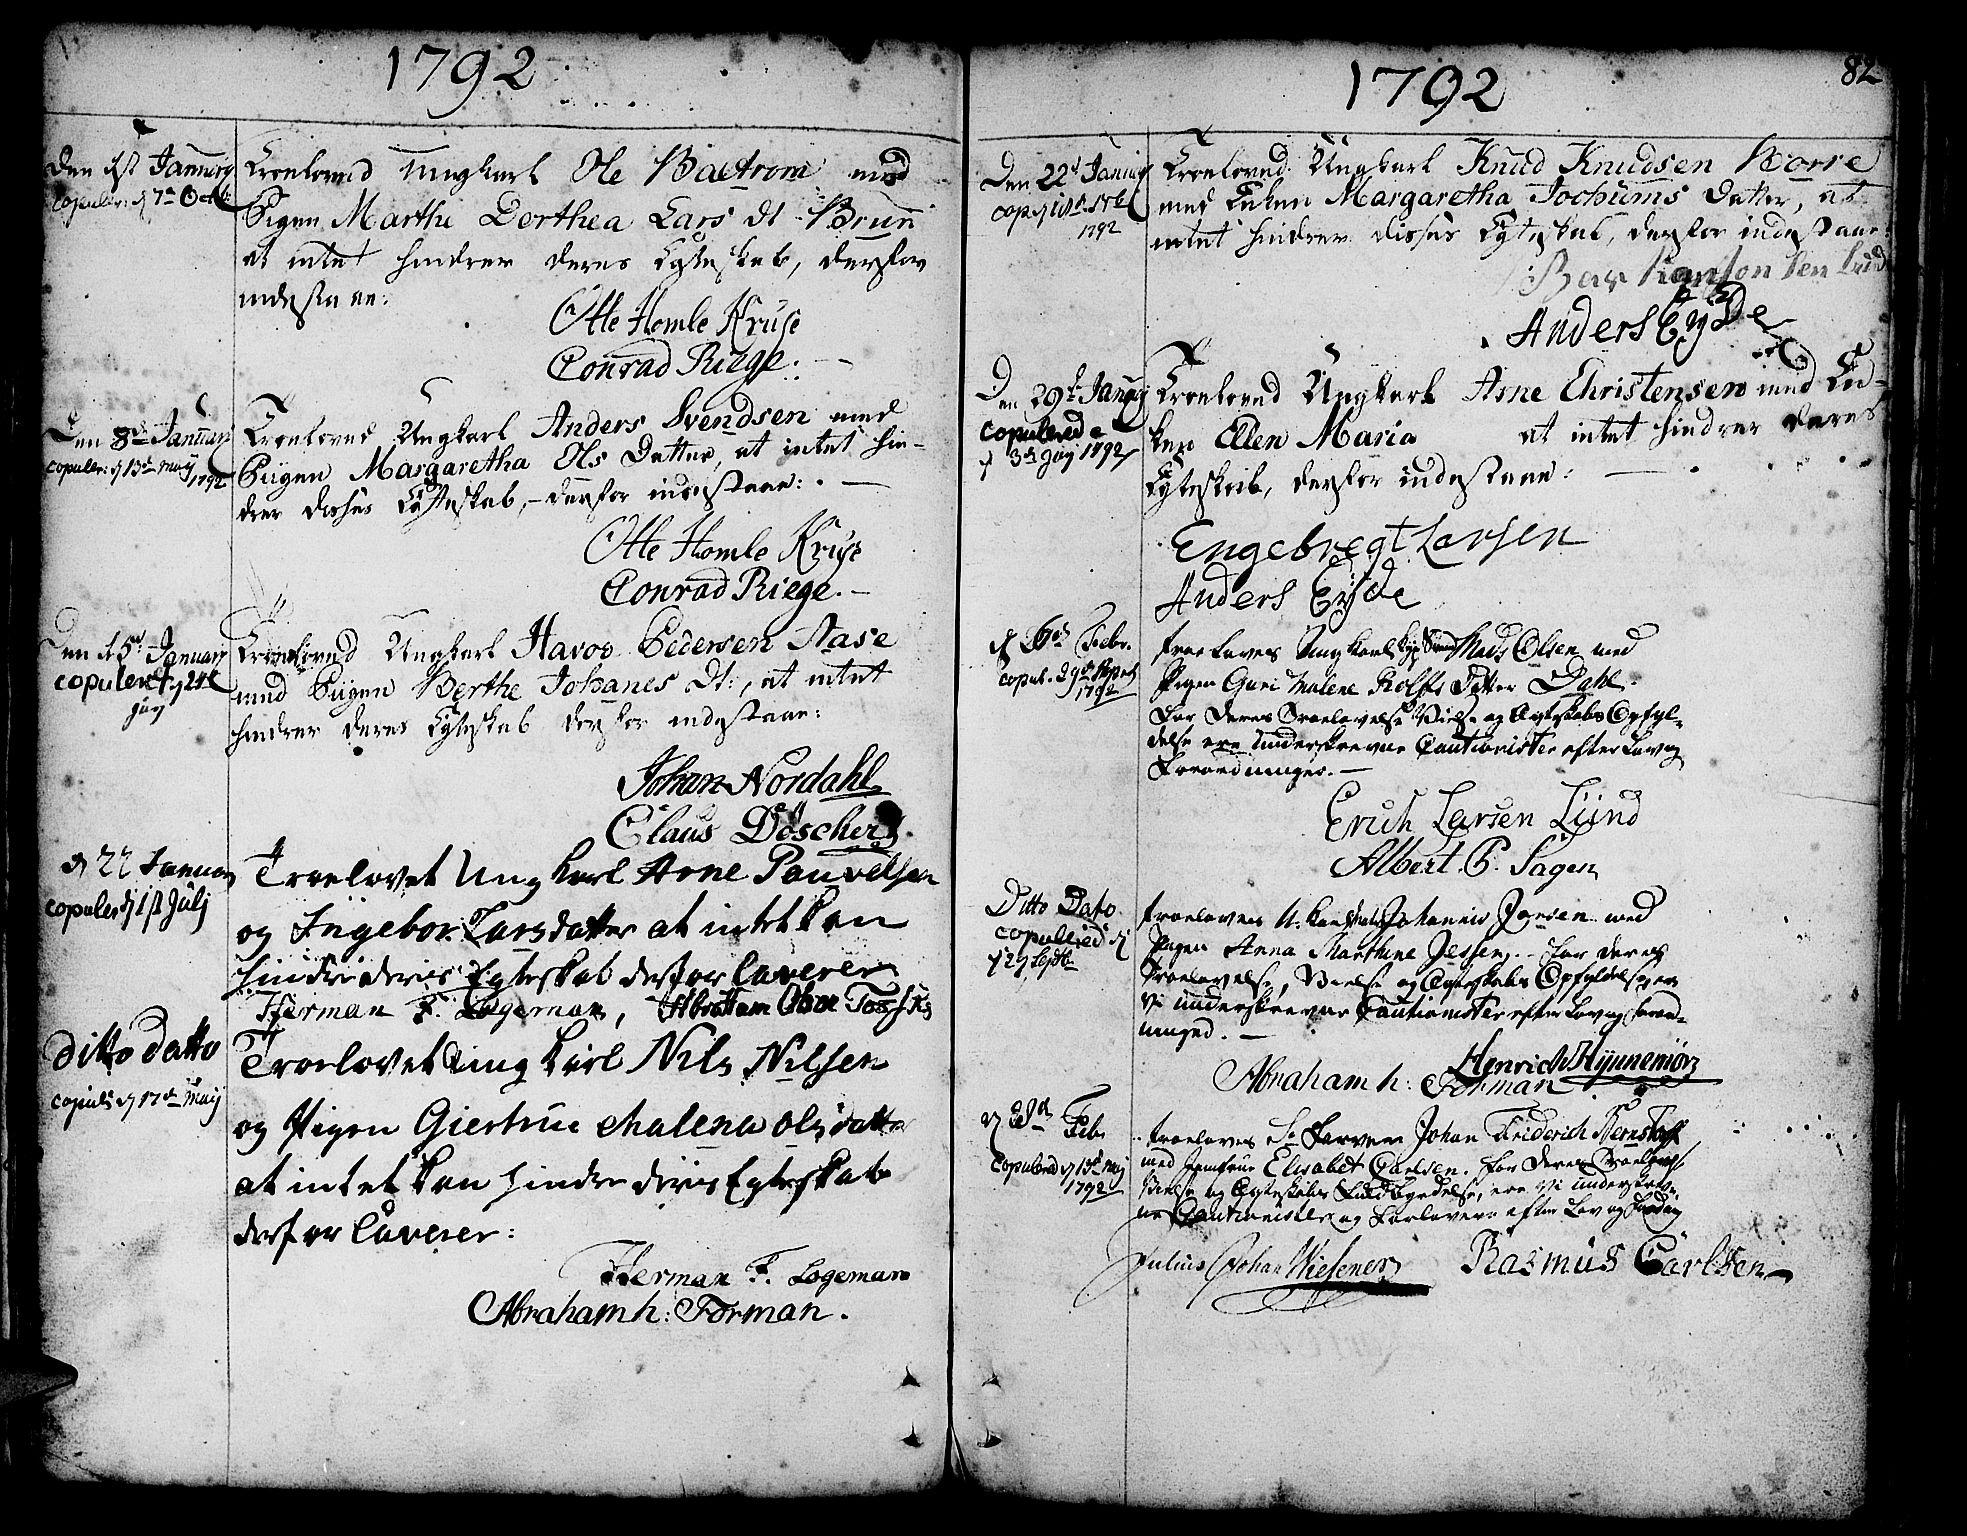 1792
Den 1st Januarij
copuler: d 7de Octb:
Troeloved Ungkarl Ole Baetrom med
Pigen Marthe Dorthea Lars Dt Brun
at intet hindrer deres Egteskab, derfor
indestaae:
Otte Homle Kruse
Conrad Riege.
Den 8de Januarij
copuler: d 13de Maij 1792
Troeloved Ungkarl Anders Svendsen med
Piigen Margaretha Ols Datter, at intet hin-
drer disses Egteskab, derfor indestaae:
Otte Homle Kruse
Conrad Riege.
Den 15de Januarij
copulert d 24de
Troeloved Ungkarl Havor Pedersen Aase
med Piigen Berthe Johanes Dt:, at intet
hindrer deres Egteskab derfor indestaae:
Johan Nordahl
Claus Döscher
d 22 Januar
copuler d 1st Julj
Troelovet Ung karl Arne Pauvelsen
og Ingebor Larsdatter at intet kan
hindre deris Egteskab derfor Caverer
Herman F. Logeman, Abraham
Ditto Datto
copul: d 17de Maij
Troelovet Ung karl Nils Nilsen
og Pigen Giertrue Malena Olsdatter
at intet kan hindre diris Egteskab
derfor Caverer:
Herman F. Logeman
Abraham h: Forman.
1792
82
Den 22de Januarij
1792
Troeloved Ungkarl Knud Knudsen Borre
med Enken Margaretha Jochums Datter, at
intet hindrer disses Egteskab, derfor indestaae:
Anders Eyde
Den 29de Januarij
copulered
d 3de Juij 1792
Troeloved Ungkarl Arne Christensen med En-
ken Ellen Maria at intet hindrer deres
Egteskab, derfor indestaae:
Engebregt Larsen
Anders Eyde
d 6de Febr.
copul. 29de
1792
troeloves Ung karl Mads Olsen med
Pigen Guri Malene Rolfs Datter Dahl.
For deres Troelovelse Vielse og Ægteskabs Opfyl-
delse ere underskrevne Cautionister efter Lov og
Forordninger.
Erich Larsen Lund
Albert P. Sagen
Ditto Dato
copulered d
29 Septb:
troeloves U. karl Johannes Jansen med
Pigen Anna Marthine Jessen. For deres
Troelovelse, Vielse og Ægteskabs Opfyldelse, er
vi underskrevne Cautionister efter Lov og Forord-
ninged.
Henrich Hynnemör
Abraham h: Forman
Feb.
copulered d 13de Maij
1792
troeloves Sr Farver Johan Friderich Bernstorff
med Jomfrue Elisabet Carlsen. For deres Troelovelse
Vielse og Ægteskabs Fuldbyrdelse, ere vi underskrev-
ne Cautionister og Forlovere efter Lov og Forordn
Julius Johan Wiesener Rasmus Carlsen